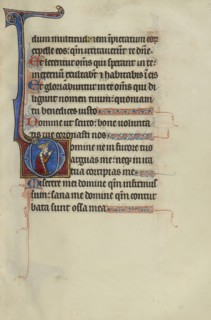 dum multitudinem impietatum eor
expelle eos: qm irritauerunt te dne.
Et letentur omes qui sperant in te:
in eternum exultabunt & habitabis i eis
Et gloriabuntur in te omes qui di
ligunt nomen tuum: quoniam
tu benedices iusto
Domine ut scuto: bone uolunta
tis tue coronasti nos
Domine ne in furore tuo
arguas me: neqz in ira
tua corripias me
Miserere mei domine qm infirmus
sum: sana me domine qm contur
bata sunt ossa mea